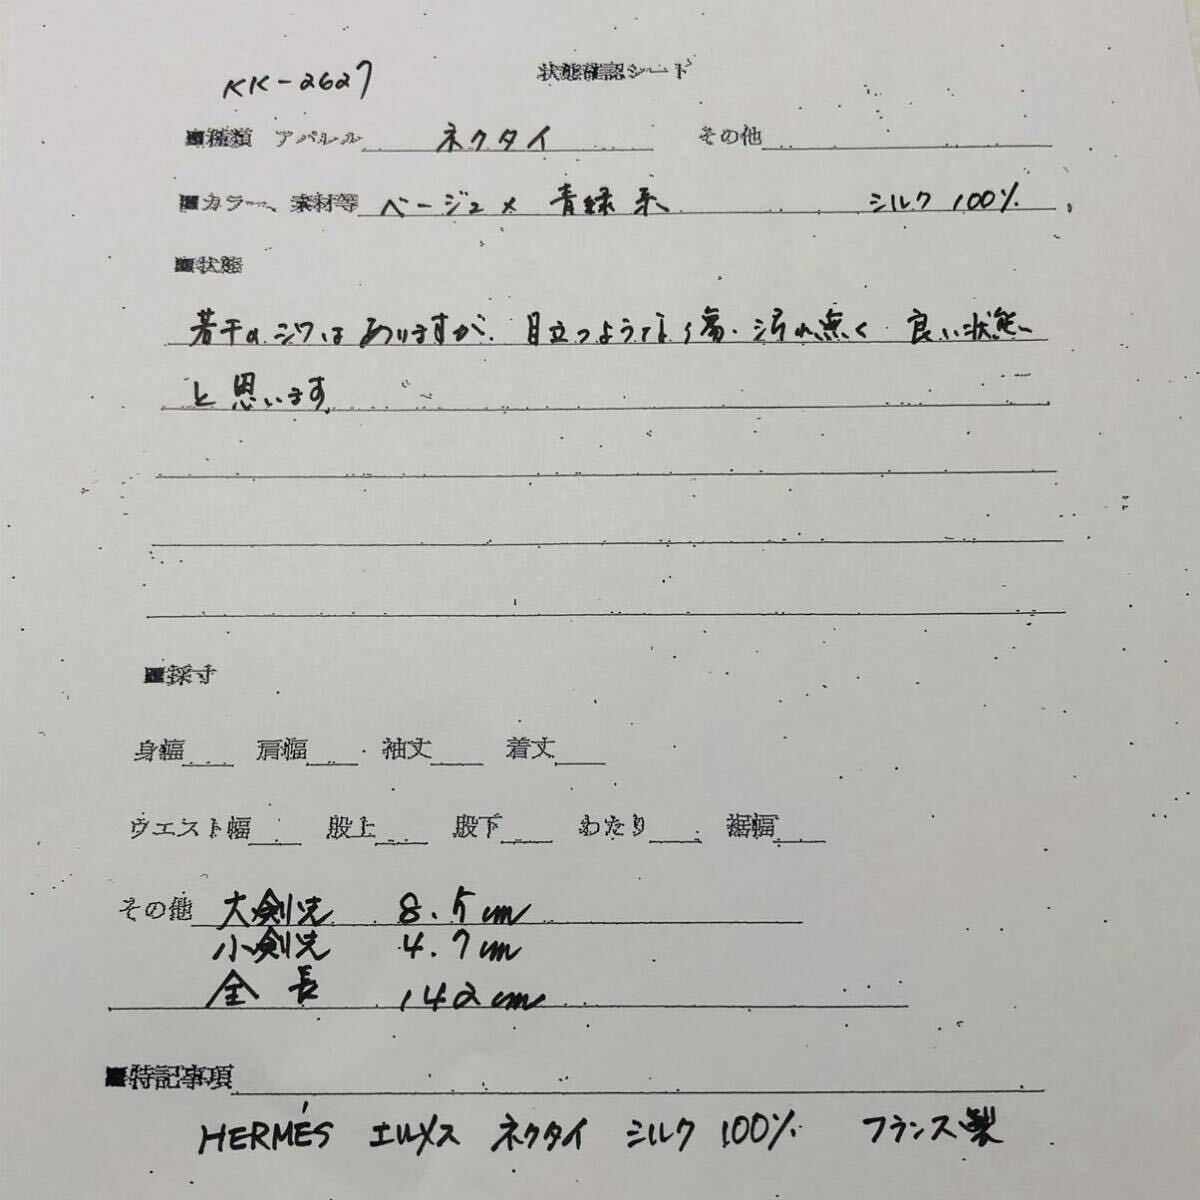 KK-2627
状態確認シート
■種類 アパレル ネクタイ その他
■カラー、素材等 ベージュ× 青緑系 シルク 100%
■状態
若干のシワはありますが、目立つような傷・汚れ無く 良い状態
と思います。
■採寸
身幅 肩幅 袖丈 着丈
ウエスト幅 股上 股下 わたり 裾幅
その他 大剣先 8.5cm
小剣先 4.7cm
全長 142cm
■特記事項
HERMÉS エルメス ネクタイ シルク 100% フランス製